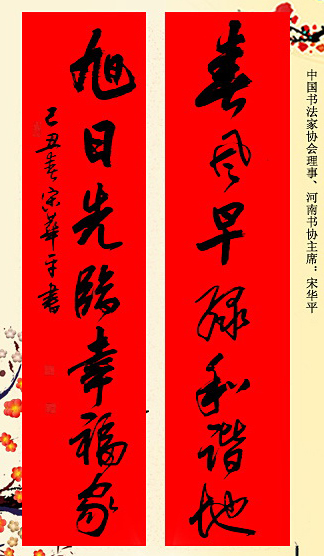 中国书法家协会理事、河南书协主席：宋华平
春风早绿和谐地
旭日先临幸福家
己丑春宋华平书